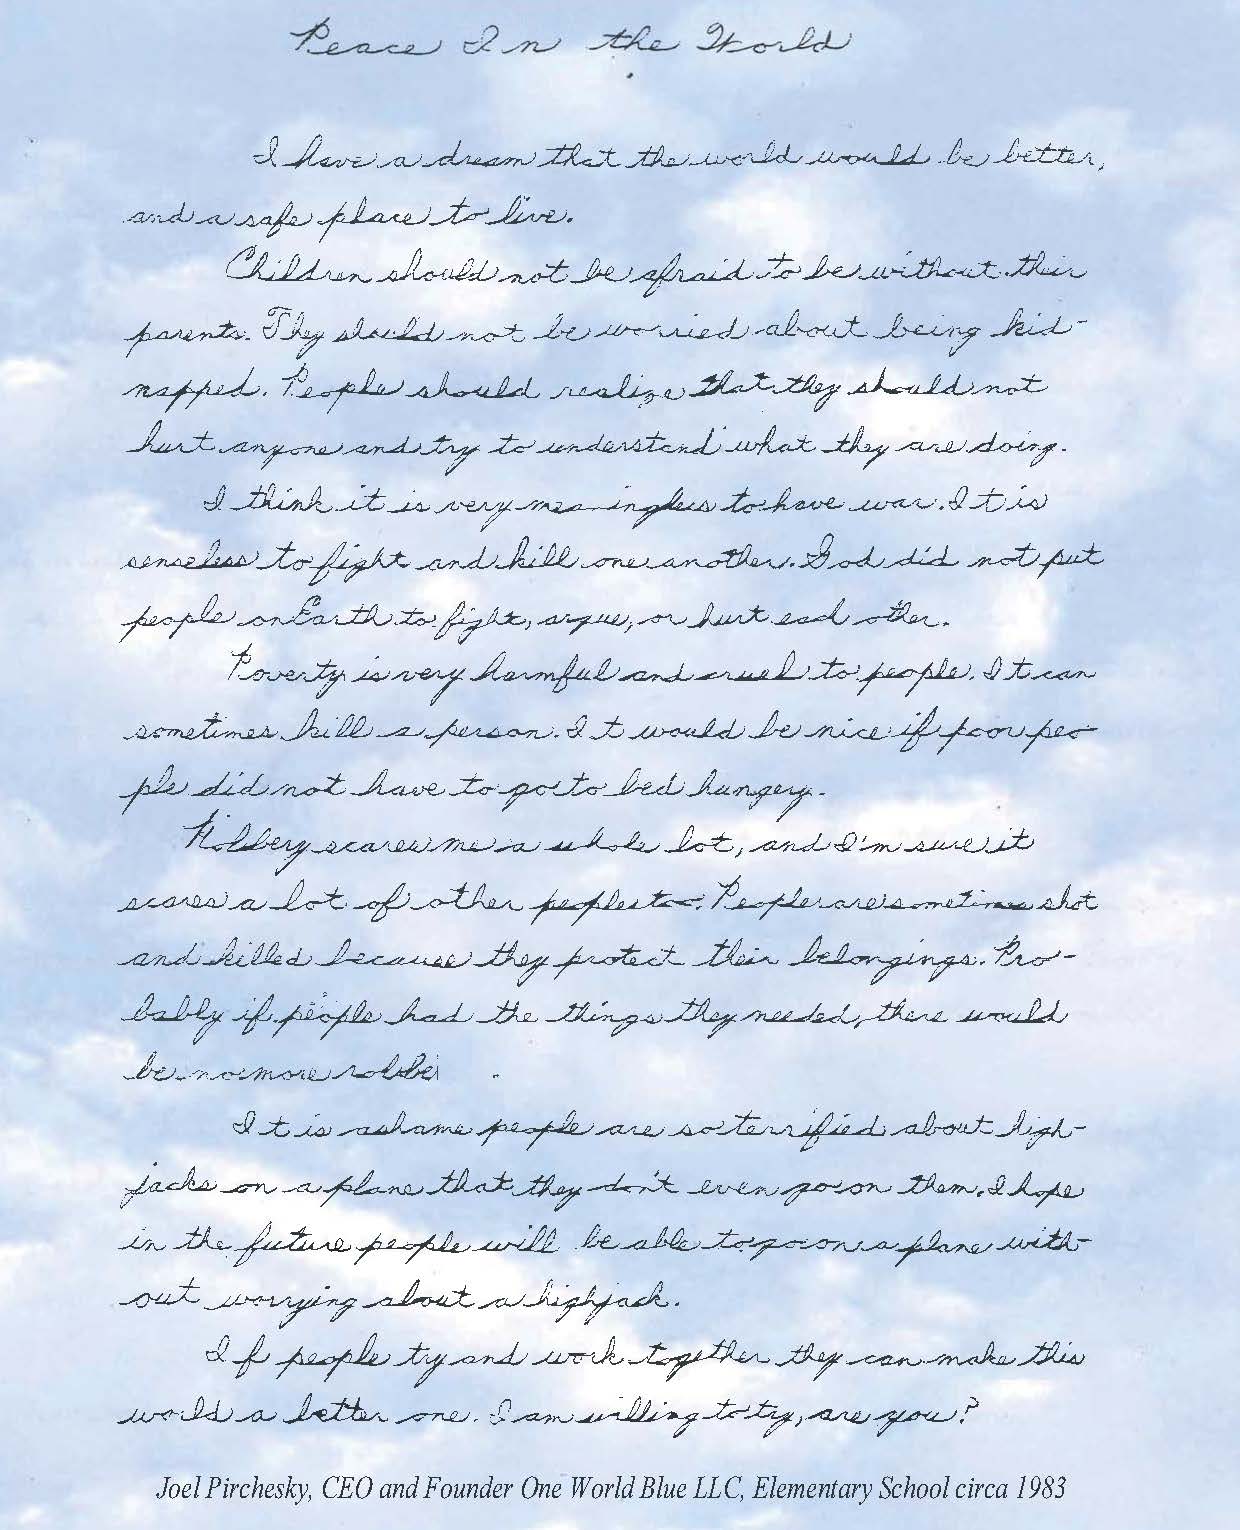 Peace In the World
I have a dream that the world would be better,
and a safe place to live.
Children should not be afraid to be without their
parents. They should not be worried about being kid-
napped. People should realize that they should not
hurt anyone and try to understand what they are doing.
I think it is very meaningless to have war. It is
senseless to fight and kill one another. God did not put
people on Earth to fight, argue, or hurt each other.
Poverty is very harmful and cruel to people. It can
sometimes kill a person. It would be nice if poor peo-
ple did not have to go to bed hungery.
Robbery scares me a whole lot, and I'm sure it
scares a lot of other people too. People are sometimes shot
and killed because they protect their belongings. Pro-
bably if people had the things they needed, there would
be no more robbe
It is a shame people are so terrified about high-
jacks on a plane that they don't even go on them. I hope
in the future people will be able to go on a plane with-
out worrying about a highjack.
If people try and work together they can make this
world a better one. I am willing to try, are you?
Joel Pirchesky, CEO and Founder One World Blue LLC, Elementary School circa 1983